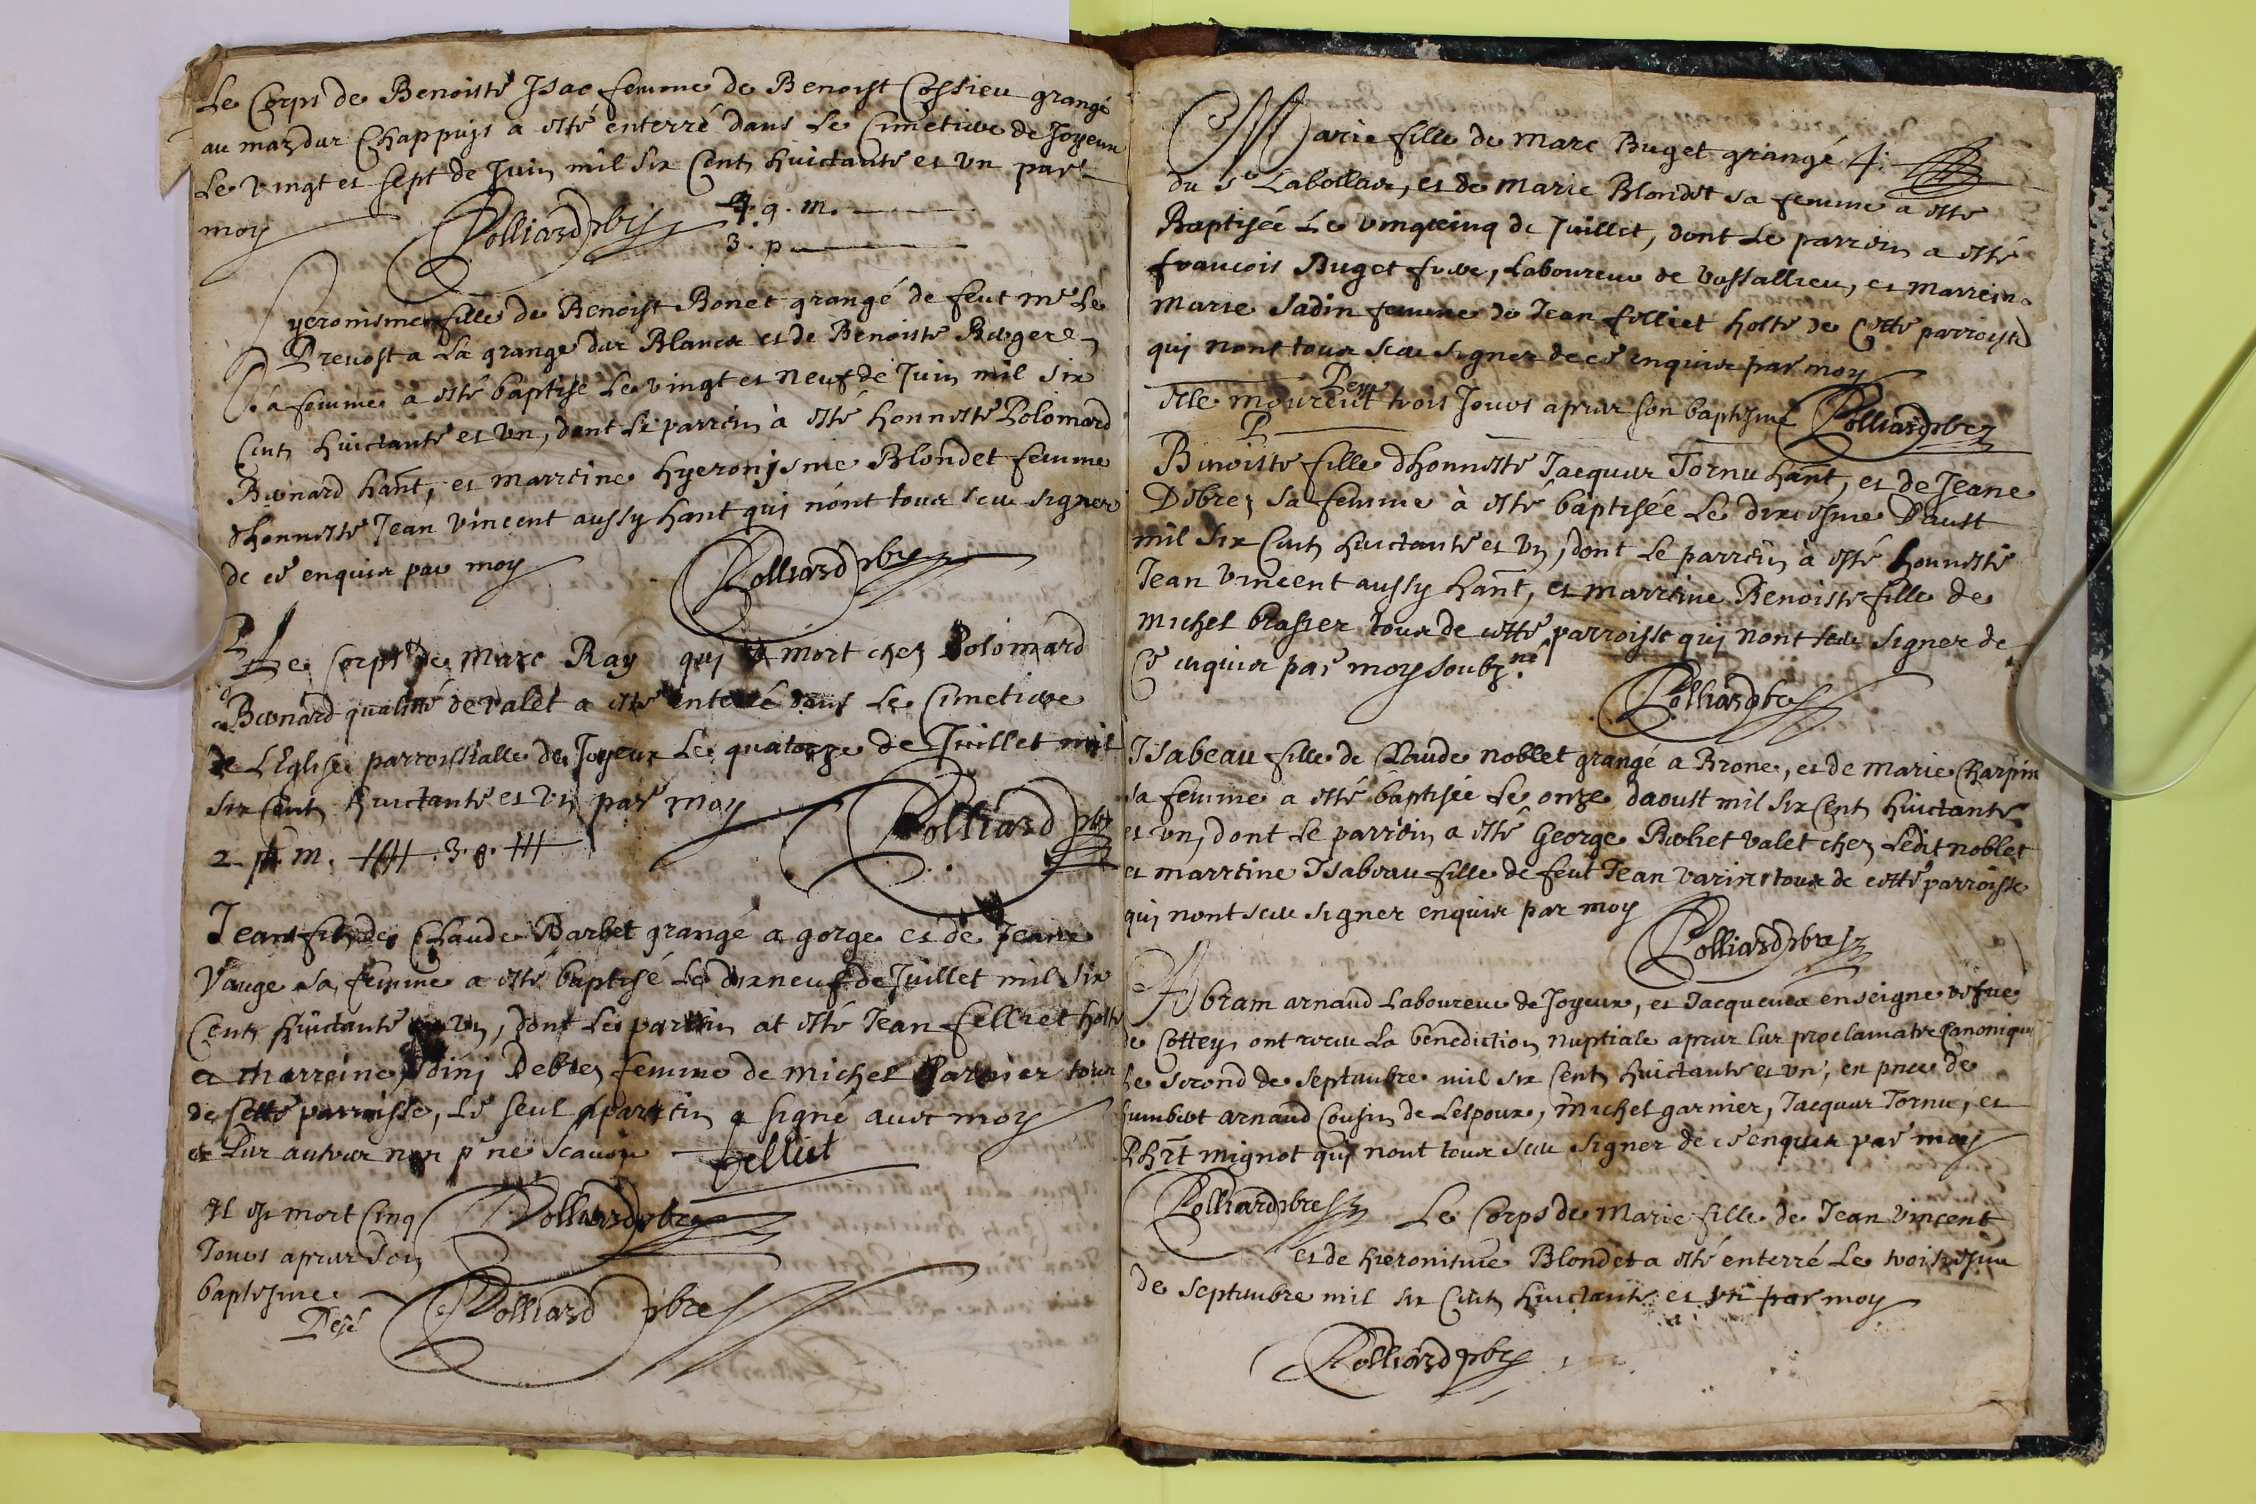 Le Corps de Benoiste Isac femme de Benoist Cossieu grangé
au mas dar Chappuys a esté enterré dans Le Cimetiere de Joyeux
Le vingt et sept de Juin mil six Cents huictante et vn par
moy Polliard pbre
4. q. m.
3. p
yeronisme fille de Benoist Bonet grangé de feut mr Le
Prevost a La grange dar Blancs et de Benoiste Bergere
sa femme a esté baptisé Le vingt et neuf de Juin mil six
Cents huictante et vn, dont Le parrein à esté honneste Polomard
Bernard hant, et marreine hyeronisme Blondet femme
dhonneste Jean Vincent aussy hant qui nont tous sceu signer
de ce enquis par moy
Polliard pbre
Le Corps de Marc Ray qui mort chez Polomard
Bernard qualitté de valet a esté enterré dans Le Cimetiere
de L'Eglise parroissialle de Joyeux Le quatorze de Juillet mil
six Cents huictante et vn par moy
Polliard pbre
2. m. 3. p.
Jean fils de Claude Barbet grangé a gorge et de Jeane
Vauge sa femme a esté baptisé Le dixneuf de Juillet mil six
Cents huictante et vn, dont Le parrein at esté Jean felliet hoste
et marreine Debrez femme de michel Garnier tous
de sette parroisse, Le seul parrein a signé avec moy
et Lar autres non p ne scavoir
felliet
Il est mort Cinq
Jours aprar son
baptesme
Polliard pbre
Polliard pbre
Marie fille de Marc Buget grangé
du sr Labollar, et de Marie Blondet sa femme a esté
Baptisée Le vingtcinq de Juillet, dont Le parrein a esté
francois Buget frere, Laboureur de Vassallieu, et marreine
Marie Sadin femme de Jean felliet hoste de Cette parroisse
qui nont tous sceu signer de ce enquis par moy
elle mourut trois Jours aprar son baptesme Polliard pbre
Benoiste fille dhonneste Jacquar Tornu hant, et de Jeane
Debrez sa femme à esté baptisée Le dixiesme D'aust
mil six Cents huictante et vn, dont Le parrein à esté honneste
Jean Vincent aussy hant, et marreine Benoiste fille de
Michel Brasier tous de cette parroisse qui nont sceu signer de
Ce enquis par moy soubz.né
Polliard pbre
Isabeau fille de Claude Noblet grangé a Brone, et de Marie Charpin
sa femme a esté baptisée Le onze daoust mil six Cents huictante
et vn, dont Le parrein a esté George Berliet valet chez Ledit Noblet
et marreine Isabeau fille de feut Jean Varin tous de cette parroisse
qui nont sceu signer enquis par moy
Polliard pbre
Abram Arnaud Laboureur de Joyeux, et Jacquema enseigne vefue
de Cottey, ont receu La benediction Nuptiale aprar Lar proclamatre Canoniques
Le second de Septembre mil six Cents huictante et vn, en pnce de
humbert Arnaud Cousin de Lespoux, Michel garnier, Jacquar Tornu, et
Phirt mignot qui nont tous sceu signer de ce enquis par moy
Polliard pbre
Le Corps de Marie fille de Jean Vincent
et de hieronisme Blondet a esté enterré Le troisiesme
de Septembre mil six Cents huictante et vn par moy
Polliard pbre